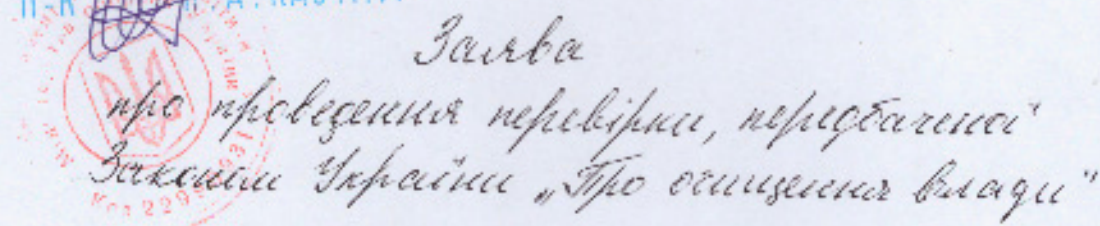 Заява
про проведення перевірки, передбаченої
Законом України „Про очищення влади"